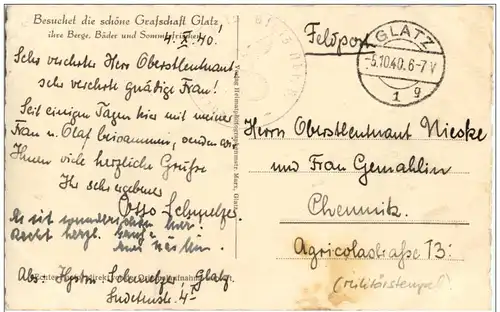 Besuchet die schöne Grafschaft Glatz,
ihre Berge, Bäder und Sommerfrischen!
4. X. 40.
Sehr verehrter Herr Oberstleutnant,
sehr verehrte gnädige Frau!
Seit einigen Tagen hier mit meiner
Frau u. Olaf beisammen, senden wir
Ihnen viele herzliche Grüße
Ihr sehr ergebener
Otto Schmelzer.
Es ist wunderschön hier.
Recht herzl.
Abs: Hptm. Schmelzer, Glatz
Sudetenstr. 4
Feldpost
GLATZ
-5.10.40.6-7V
1 g
Herrn Oberstleutnant Nieske
und Frau Gemahlin
Chemnitz.
Agricolastraße 13:
(Militärstempel)